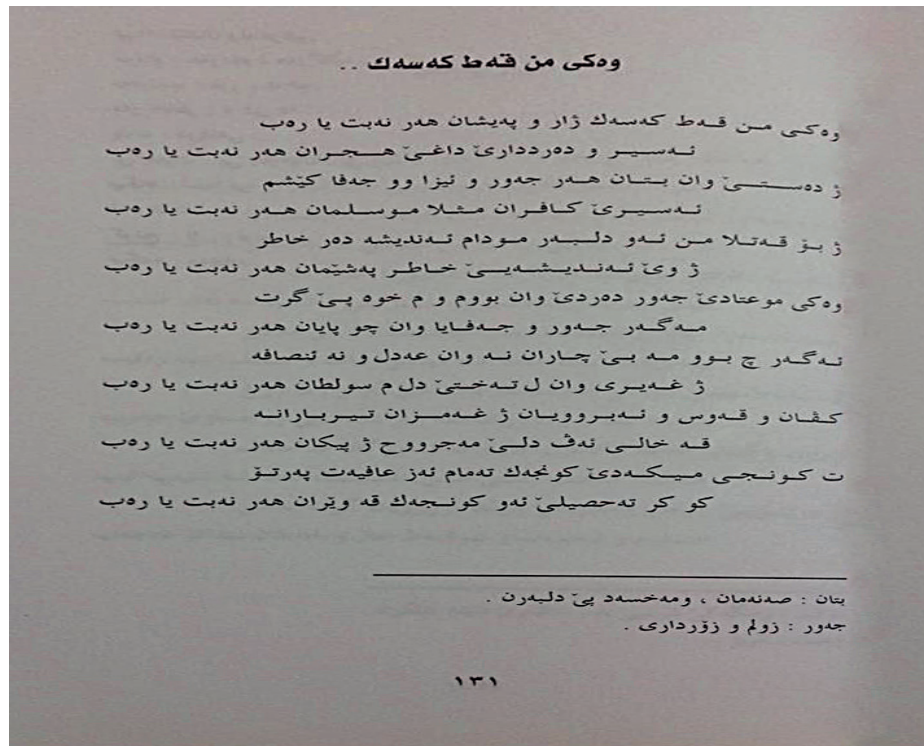 وەكی من قەط كەسەك ..
وەكی من قەط كەسەك ژار و پەیشان هەر نەبت یا رەب
ئەسیر و دەردداریٚ داغیٚ هجران هەر نەبت یا رەب
ژ دەستیٚ وان بتان هەر جەور و ئیزا وو جەفا كیٚشم
ئەسیریٚ كافران مثلا موسلمان هەر نەبت یا رەب
ژ بۆ قەتلا من ئەو دلبەر مودام ئەندیشە دەر خاطر
ژ ویٚ ئەندیشەییٚ خاطر پەشیٚمان هەر نەبت یا رەب
وەكی موعتادیٚ جەور دەردیٚ وان بووم و م خوە پیٚ گرت
مەگەر جەور و جەفایا وان چو پایان هەر نەبت یا رەب
ئەگەر چ بوو مە بیٚ چاران نە وان عەدل و نە ئنصافە
ژ غەیری وان ل تەختیٚ دل م سولطان هەر نەبت یا رەب
كڤان و قەوس و ئەبروویان ژ غەمزان تیربارانە
قە خالی ئەڤ دلیٚ مەجرووح ژ پیكان هەر نەبت یا رەب
ت كونجی میكەدیٚ كونجەك تەمام ئەز عافیەت پەرتۆ
كو كر تەحصیلیٚ ئەو كونجەك قە ویٚران هەر نەبت یا رەب
بتان : صەنەمان ، ومەخسەد پیٚ دلبەرن .
جەور : زولم و زۆرداری .
١٣١